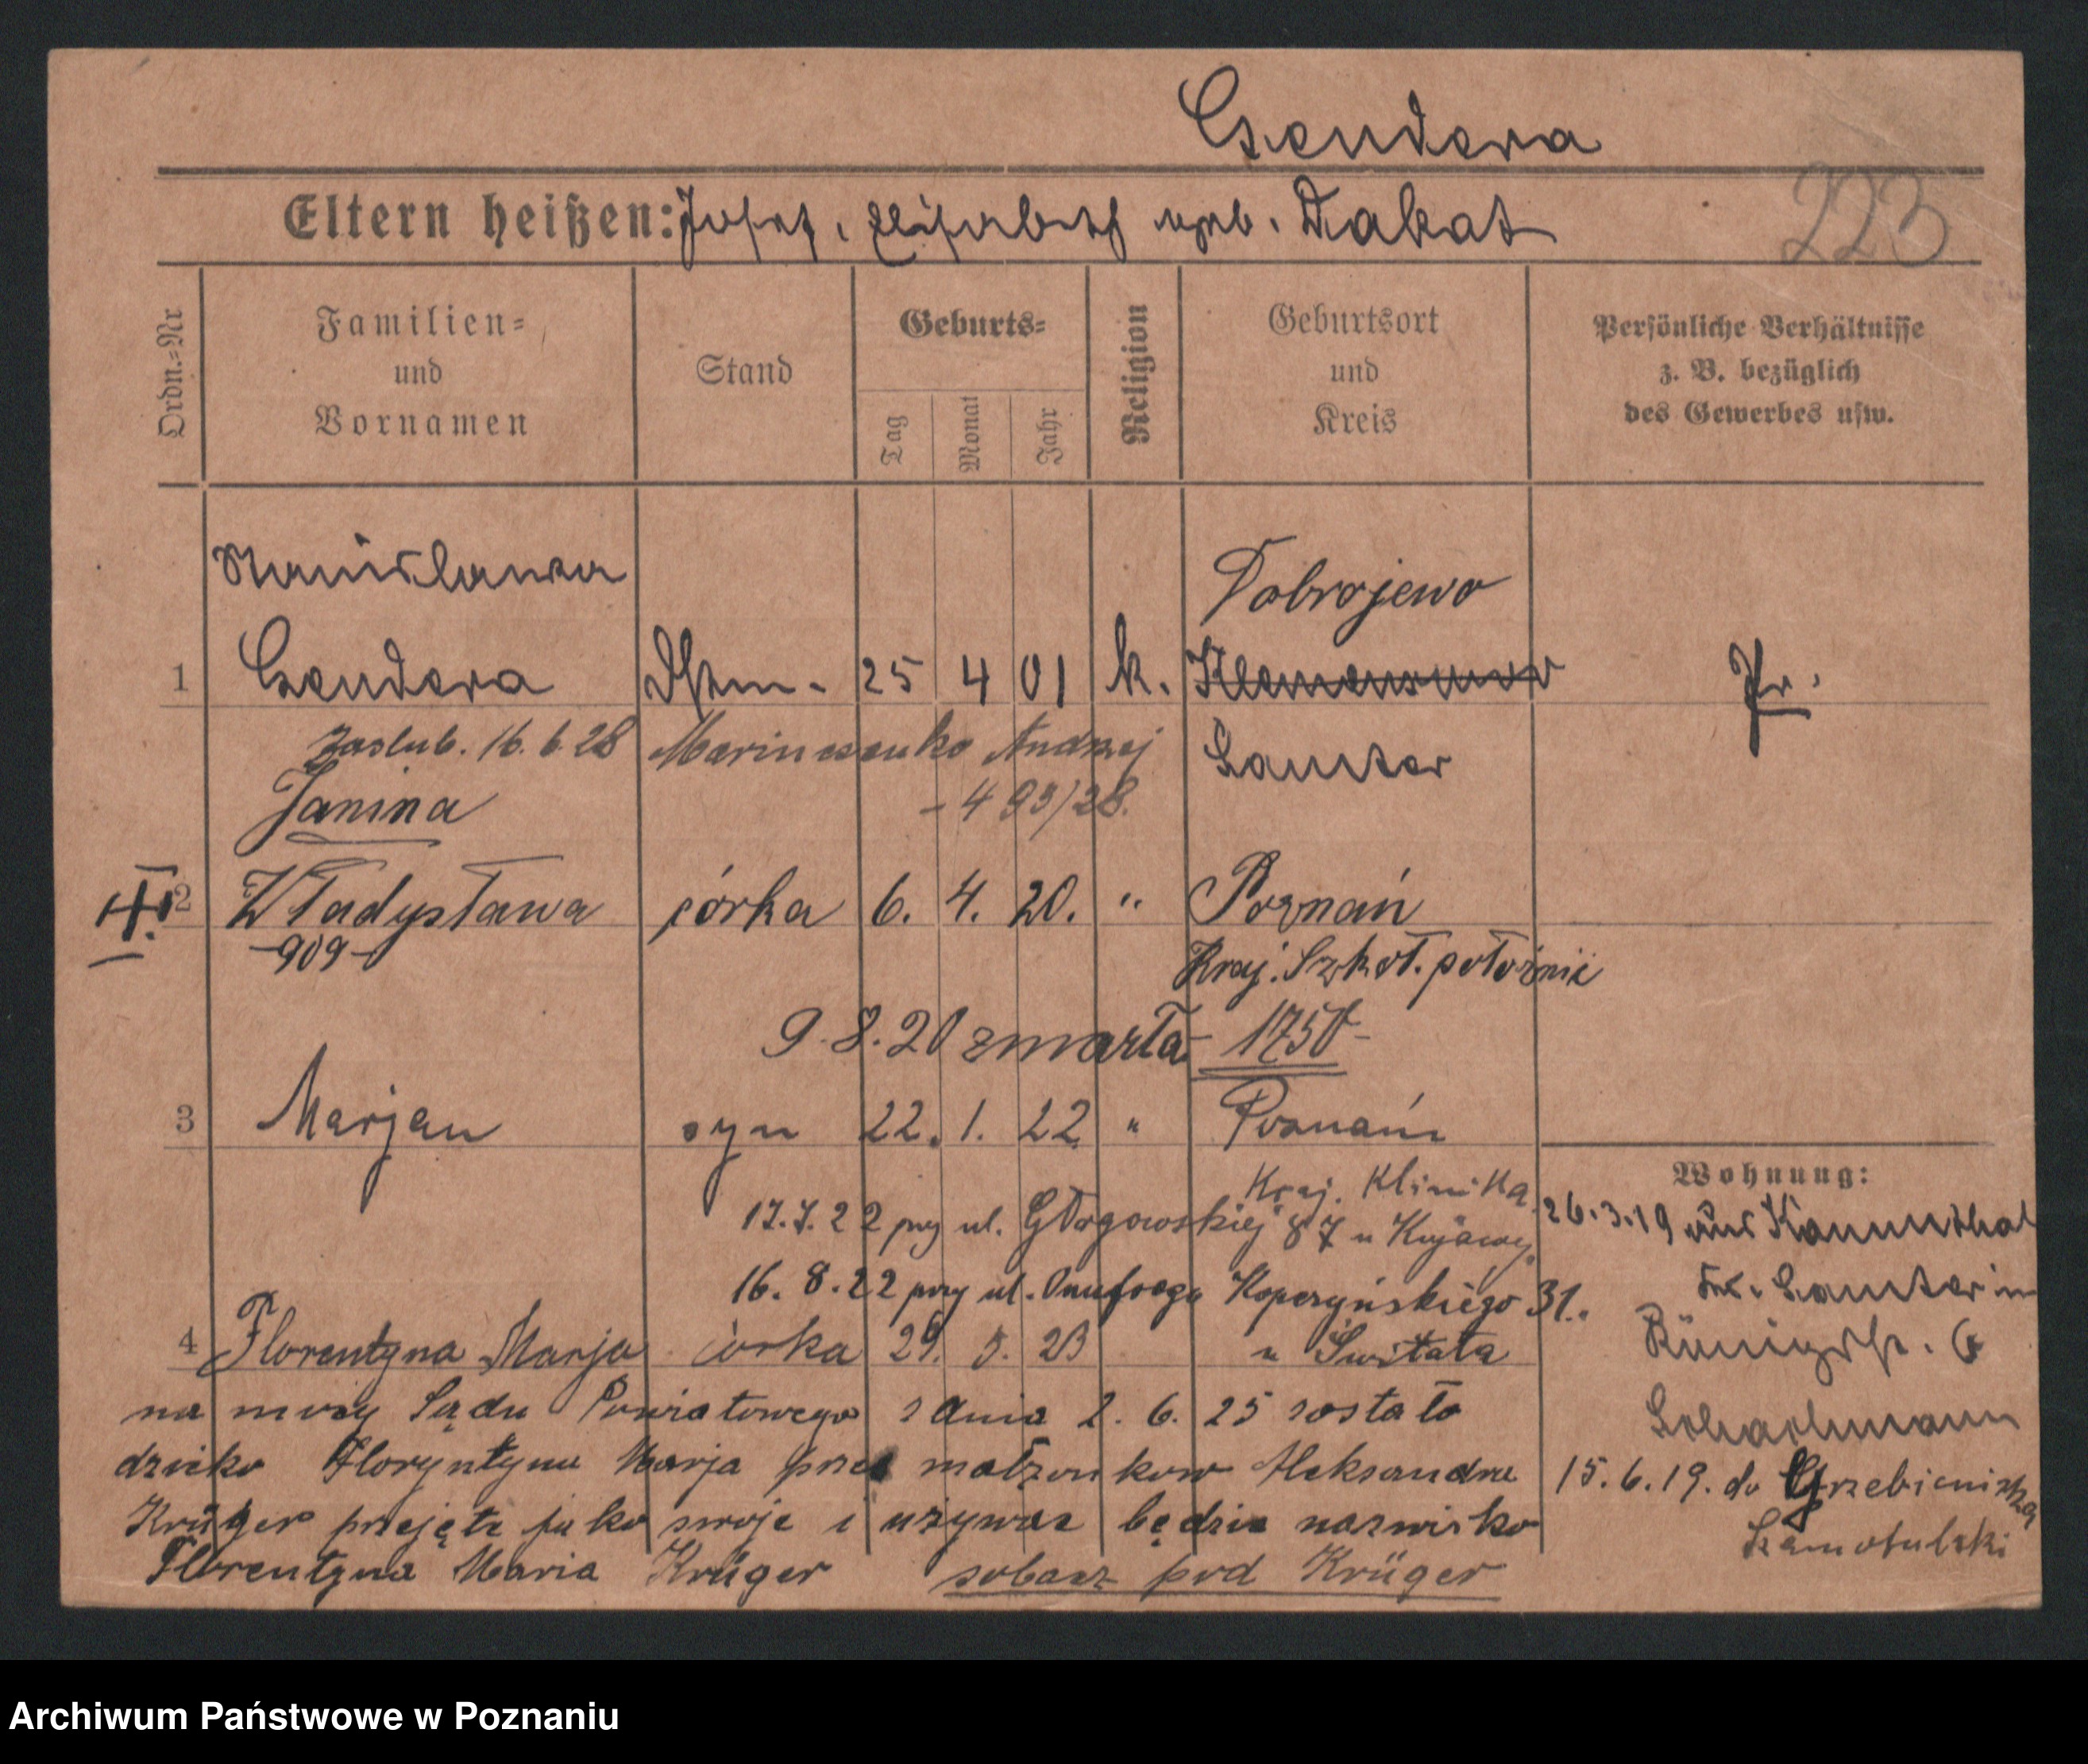 Czendera
Eltern heißen: Josef, Elisabeth geb. Dakat
223
Ordn.-Nr
Familien-
und
Vornamen
Stand
Geburts-
Tag
Monat
Jahr
Religion
Geburtsort
und
Kreis
Persönliche Verhältnisse
z. B. bezüglich
des Gewerbes usw.
Stanislawa
Dobrojewo
1 Czendera Dstm. 25 4 01 k. Pr.
zaślub. 16. 6. 28 Marinczenko Andrzej Samter
Janina - 493/28.
III.
2 Władysława córka 6. 4. 20. " Poznań
-909- Kraj. Szkoł. położnic
9. 8. 20 zmarła - 1750 -
3 Marjan syn 22. 1. 22 " Poznań
Wohnung:
Kraj. Klinika
17.7.22 przy ul. Głogowskiej 87 u Kujawy
26.3.19 aus
Kr. Samter in
16. 8. 22 przy ul. Onufrego Kopczyńskiego 31.
u Świtała
4 Florentyna Marja córka 29. 5. 23
6
na mocy Sądu Powiatowego z dnia 2. 6. 25 zostało
dziecko Floryntyna Marja przez małżonków Aleksandra
15.6.19. do Grzebieniska
Krüger przejęte jako swoje i używać będzie nazwisko
Szamotulski
Florentyna Maria Krüger zobacz pod Krüger
Archiwum Państwowe w Poznaniu